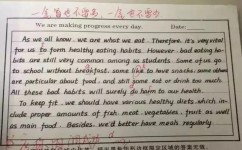 We are making progress every day. Date:
As we all know, we are what we eat. Therefore, it's very vital
for us to form healthy eating habits. However, bad eating ha-
bits are still very common among us students. Some of us go
to school without breakfast, some like to have snacks, some others
are particular about food, and still some eat or drink too much.
All these bad habits will surely do harm to our health.
To keep fit, we should have various healthy diets, which in-
clude proper amounts of fish, meat, vegetables, fruit as well as
main food. Besides, we'd better have meals regularly.